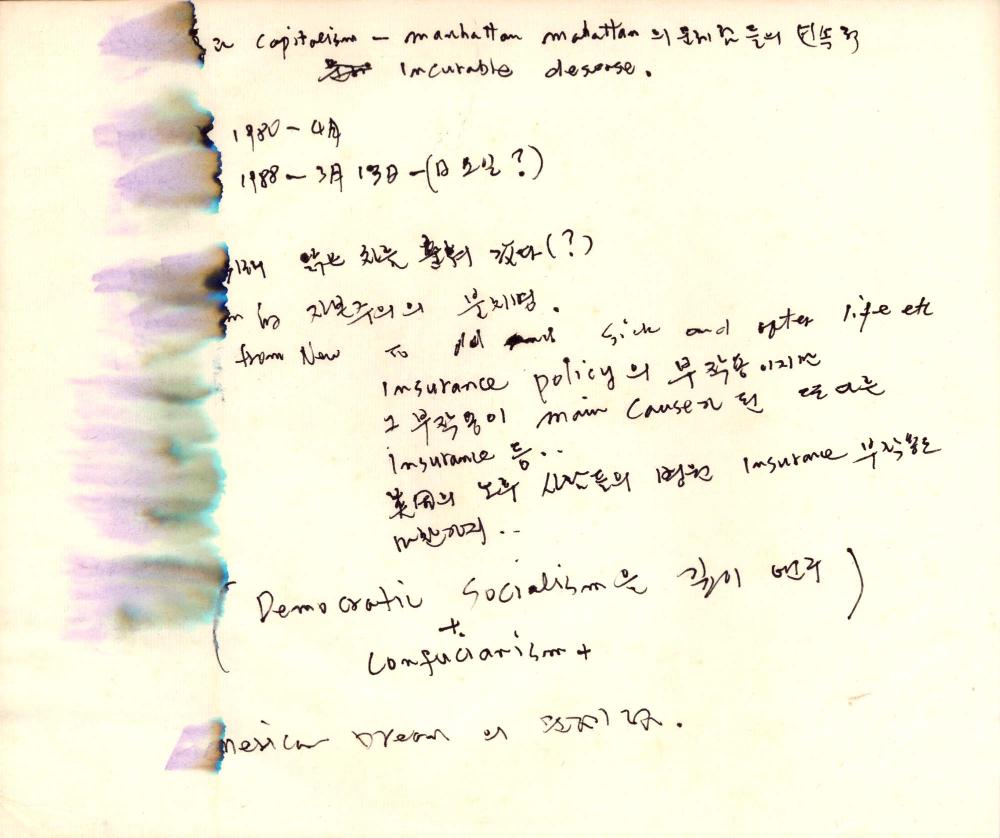 capitalism – manhattan mahattan의 문제점들의 민속적
Incurable desease.
1980 – 4月
1988 – 3月 13日 – (日요일?)
읽은 책을 갔다(?)
자본주의의 불치병.
from New To old sick and after life etc
insurance policy의 부작용이지만
그 부작용이 main cause가 된 또 다른
insurance 등..
英国의 노후 사람들의 병원 Insurance 부작용도
마찬가지..
(Democratic Socialism을 깊이 연구)
+
Confucianism +
merican Dream의